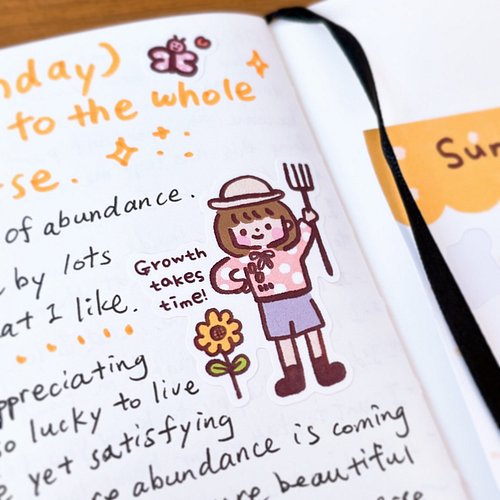 nday)
to the whole
rse.
of abundance.
by lots
at I like.
Growth
takes
time!
ppreciating
so lucky to live
yet satisfying
abundance is coming
beautiful
Sun